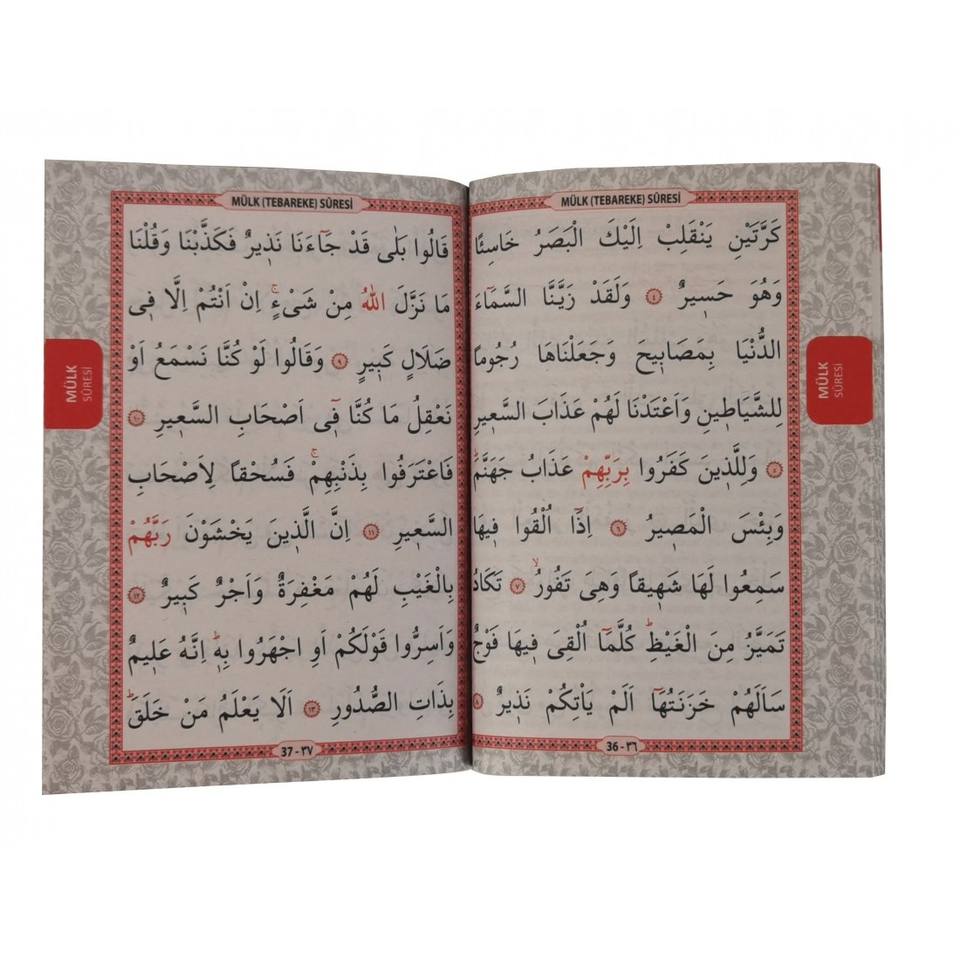 MÜLK (TEBAREKE) SÛRESİ
كَرَّتَيْنِ يَنْقَلِبْ اِلَيْكَ الْبَصَرُ خَاسِئًا
وَهُوَ حَسٖيرٌ ﴿٤﴾ وَلَقَدْ زَيَّنَّا السَّمَٓاءَ
الدُّنْيَا بِمَصَابٖيحَ وَجَعَلْنَاهَا رُجُوماً
لِلشَّيَاطٖينِ وَاَعْتَدْنَا لَهُمْ عَذَابَ السَّعٖيرِ
﴿٥﴾ وَلِلَّذٖينَ كَفَرُوا بِرَبِّهِمْ عَذَابُ جَهَنَّمَؕ
وَبِئْسَ الْمَصٖيرُ ﴿٦﴾ اِذَٓا اُلْقُوا فٖيهَا
سَمِعُوا لَهَا شَهٖيقاً وَهِىَ تَفُورُۙ ﴿٧﴾ تَكَادُ
تَمَيَّزُ مِنَ الْغَيْظِؕ كُلَّمَٓا اُلْقِىَ فٖيهَا فَوْجٌ
سَاَلَهُمْ خَزَنَتُهَٓا اَلَمْ يَاْتِكُمْ نَذٖيرٌ ﴿٨﴾
36 - ٣٦
MÜLK
SÛRESİ
MÜLK (TEBAREKE) SÛRESİ
قَالُوا بَلٰى قَدْ جَٓاءَنَا نَذٖيرٌ فَكَذَّبْنَا وَقُلْنَا
مَا نَزَّلَ اللّٰهُ مِنْ شَىْءٍۚ اِنْ اَنْتُمْ اِلَّا فٖى
ضَلَالٍ كَبٖيرٍ ﴿٩﴾ وَقَالُوا لَوْ كُنَّا نَسْمَعُ اَوْ
نَعْقِلُ مَا كُنَّا فٖٓى اَصْحَابِ السَّعٖيرِ ﴿١٠﴾
فَاعْتَرَفُوا بِذَنْبِهِمْۚ فَسُحْقاً لِاَصْحَابِ
السَّعٖيرِ ﴿١١﴾ اِنَّ الَّذٖينَ يَخْشَوْنَ رَبَّهُمْ
بِالْغَيْبِ لَهُمْ مَغْفِرَةٌ وَاَجْرٌ كَبٖيرٌ ﴿١٢﴾
وَاَسِرُّوا قَوْلَكُمْ اَوِ اجْهَرُوا بِهٖؕ اِنَّهُ عَلٖيمٌ
بِذَاتِ الصُّدُورِ ﴿١٣﴾ اَلَا يَعْلَمُ مَنْ خَلَقَؕ
37 - ٣٧
MÜLK
SÛRESİ